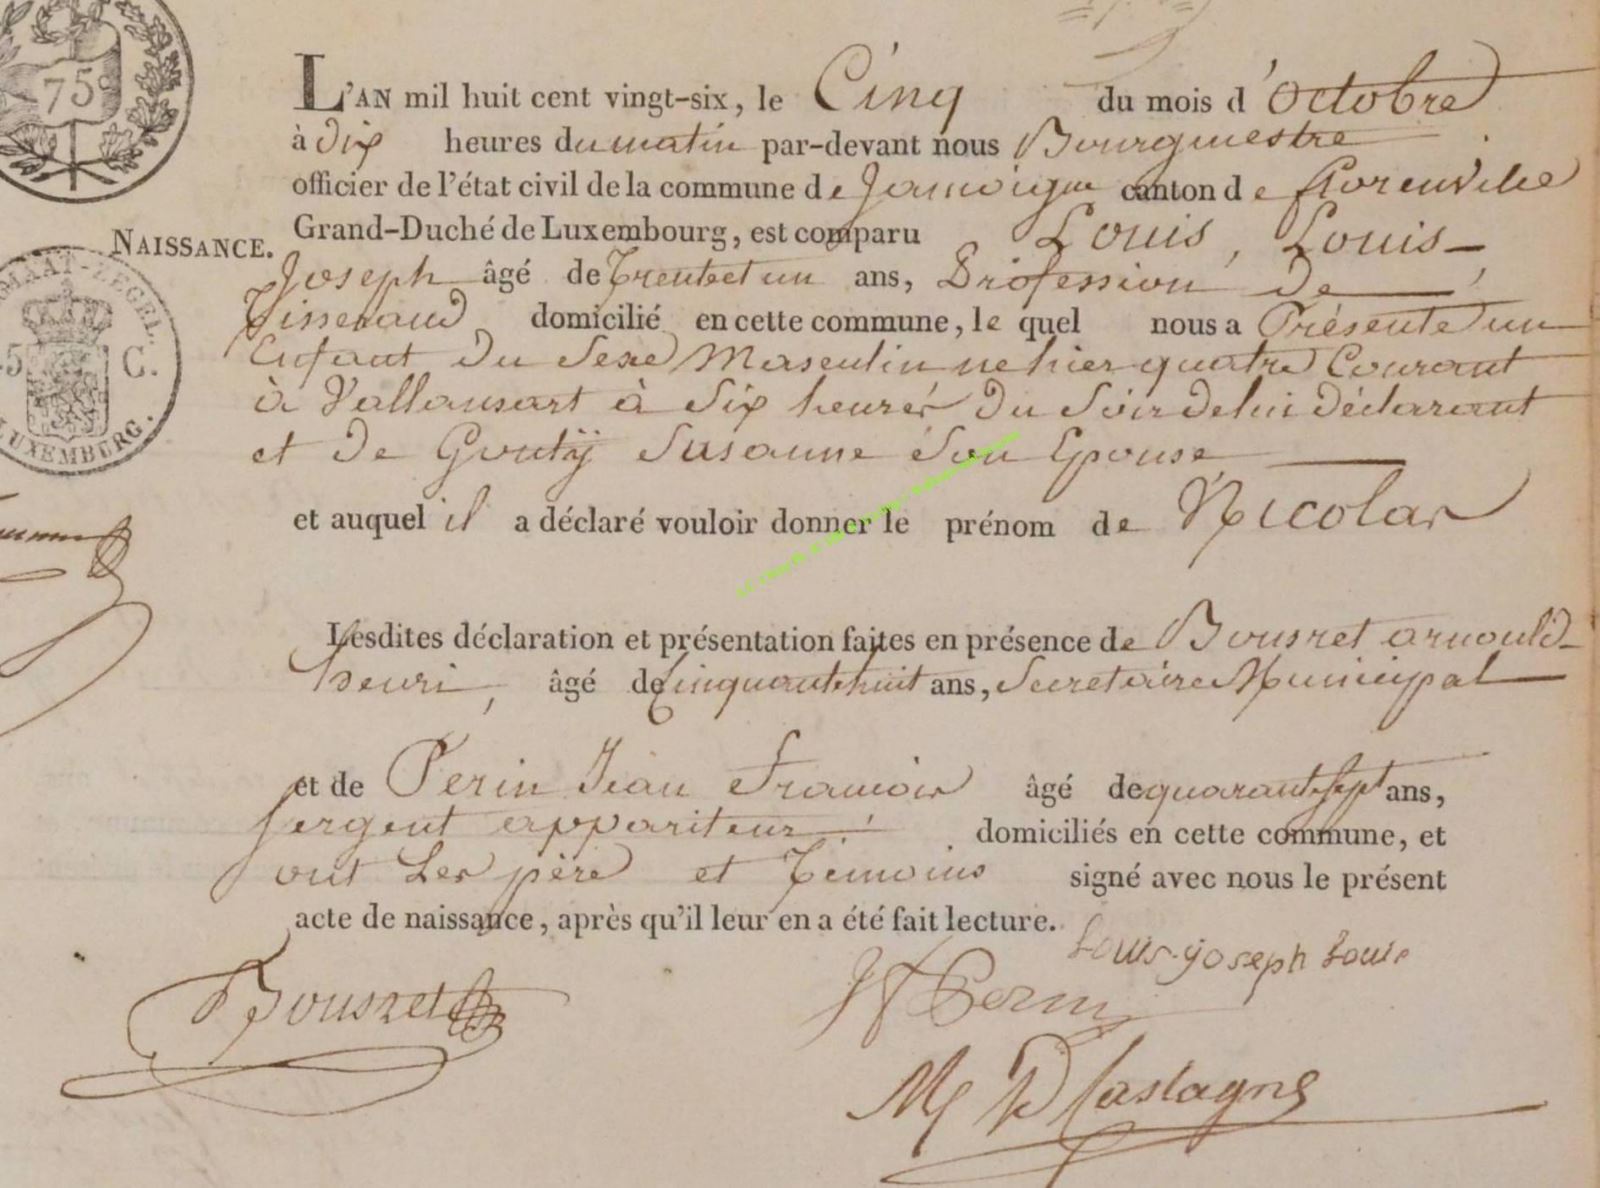 75 c
L'AN mil huit cent vingt-six, le Cinq du mois d'Octobre
à dix heures du matin par-devant nous Bourgmestre
officier de l'état civil de la commune de Jamoigne canton de florenville
NAISSANCE. Grand-Duché de Luxembourg, est comparu Louis, Louis-
Joseph âgé de Trente et un ans, Profession de
Tisserand domicilié en cette commune, le quel nous a Présenté un
Enfant du Sexe Masculin né hier quatre Courant
à Vallansart à Six heures du Soir de lui déclarant
et de Goutÿ Susanne Son Epouse
et auquel il a déclaré vouloir donner le prénom de Nicolas
Lesdites déclaration et présentation faites en présence de Bousret arnould-
henri, âgé de Cinquante huit ans, Secretaire Municipal
et de Perin Jean François âgé de quarante Sept ans,
Sergent appariteur domiciliés en cette commune, et
ont Les père et Témoins signé avec nous le présent
acte de naissance, après qu'il leur en a été fait lecture.
Louis joseph Louis
Bousret
Perin
Castagne
C.
LUXEMBURG.